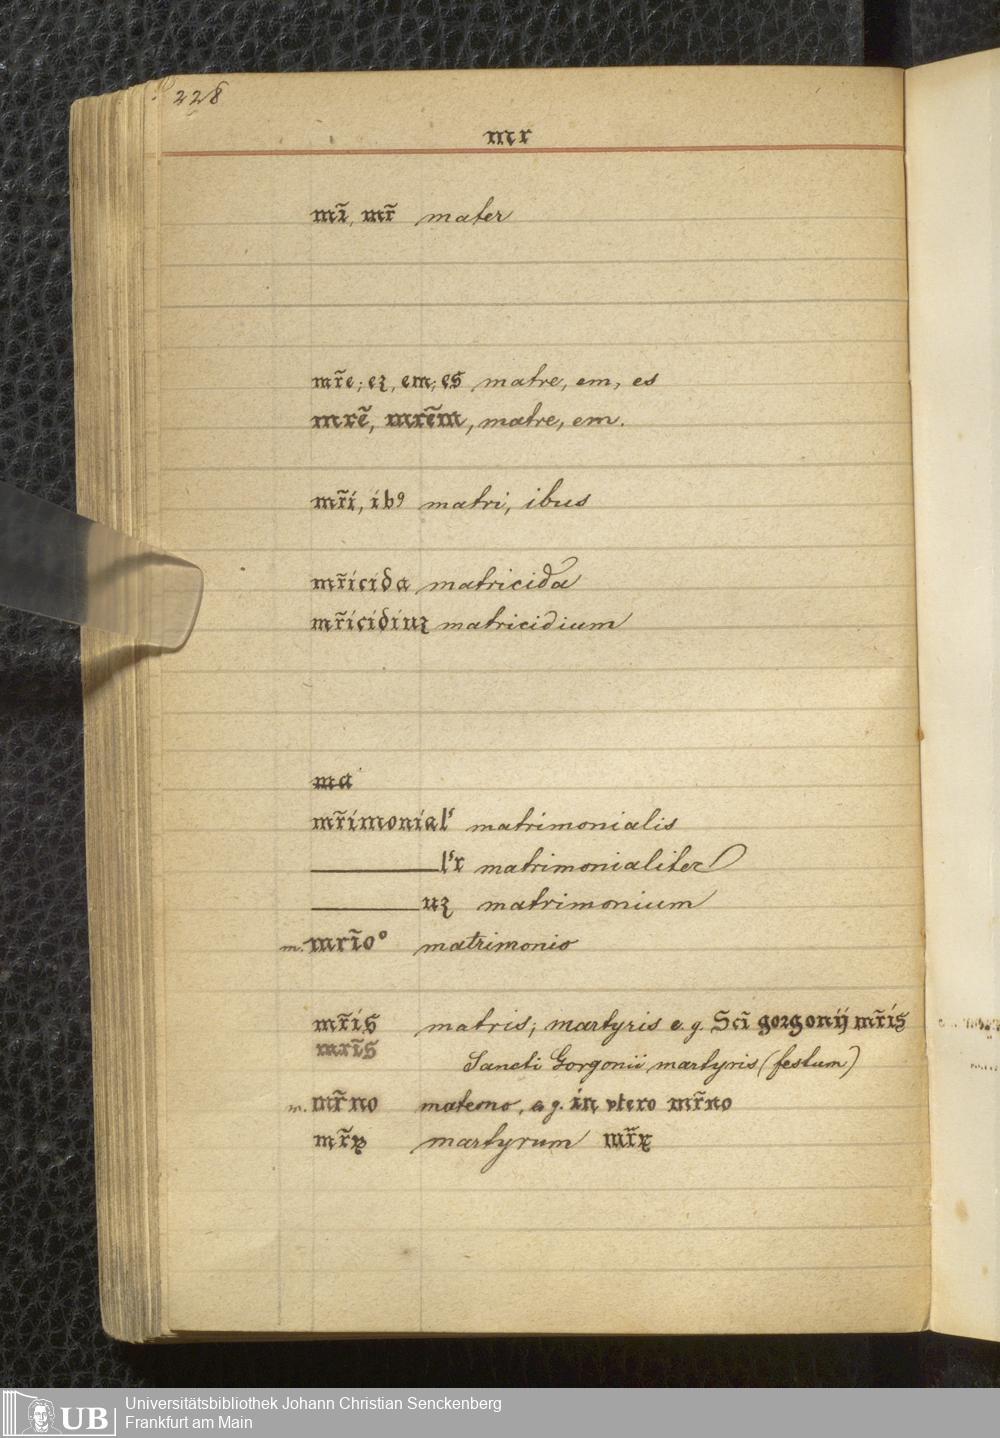 228
mr
mr̃, mr̃ mater
mr̃e; eʒ, em; es matre, em, es
mrẽ, mrẽm, matre, em.
mr̃i, ibꝰ matri, ibus
mr̃icida matricida
mr̃icidiuʒ matricidium
ma
mr̃imonialˢ matrimonialis
lˢr matrimonialiter
uʒ matrimonium
m. mrĩoº matrimonio
mr̃is matris; martyris e. g. Scĩ gorgonij mr̃is
mrĩs Sancti Gorgonii martyris (festum)
m. mr̃no materno, e. g. in vtero mr̃no
mr̃ꝝ martyrum mr̃ꝝ
UB
Universitätsbibliothek Johann Christian Senckenberg
Frankfurt am Main